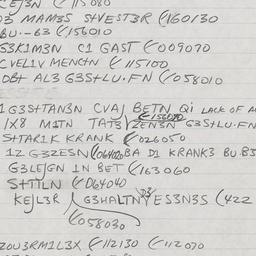 CEJ3N (115080
D3 MAM3S SHVEST3R (160130
BU.-63 (156010
S3K1M3N C1 GAST (009070
CVEL1V MENCTN (115100
OBT AL3 G3S+LU.FN (058010
1G3S+TAN3N CVAJ BETN Qi LACK OF A
1X8 M1TN TAT3 (156010 ZEN3N G3S+LU.FN
S+TAR1K KRANK (026050
1Z G3ZE3N (064020 BA D1 KRANK3 BU.B3
G3LEJGN 1N BET (163060
S+T1LN (064040
KEJL3R G3HALTND3 YE53N3S (422
(058030
Z0U3RM1L3X (112130 (112070